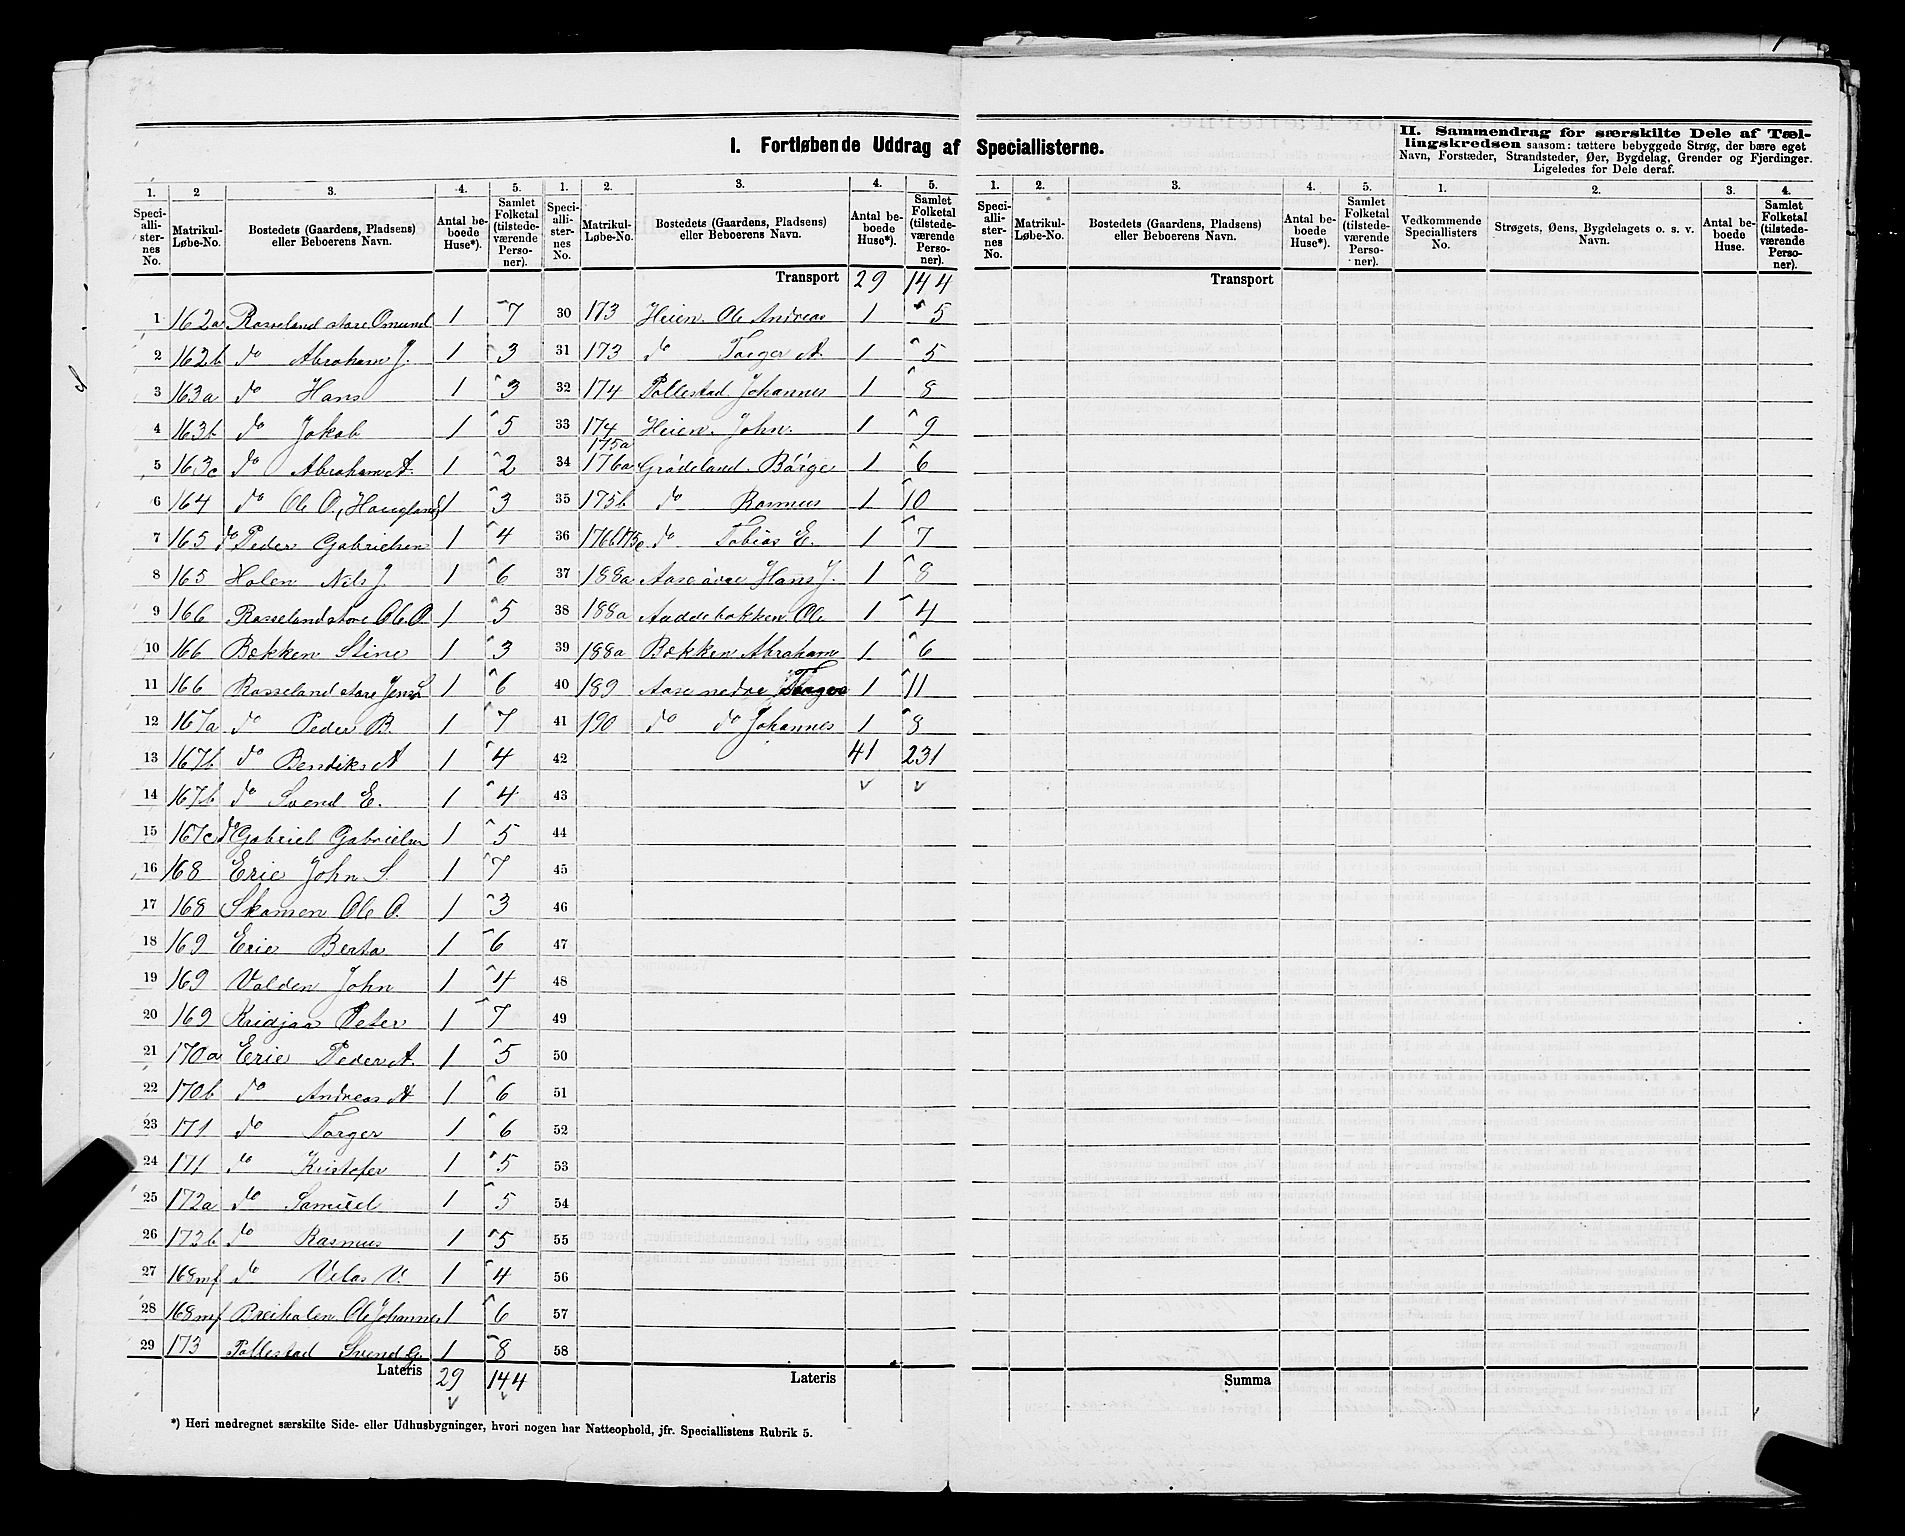 I. Fortløbende Uddrag af Speciallisterne.
II. Sammendrag for særskilte Dele af Tæl-
lingskredsen saasom: tættere bebyggede Strøg, der bære eget
Navn, Forstæder, Strandsteder, Øer, Bygdelag, Grender og Fjerdinger.
Ligeledes for Dele deraf.
1. 2 3. 4. 5. 1. 2. 3. 4. 5. 1. 2. 3. 4. 5. 1. 2. 3. 4.
Speciallisternes No. Matrikul-Løbe-No. Bostedets (Gaardens, Pladsens) eller Beboerens Navn. Antal beboede Huse*). Samlet Folketal (tilstedeværende Personer).
Speciallisternes No. Matrikul-Løbe-No. Bostedets (Gaardens, Pladsens) eller Beboerens Navn. Antal beboede Huse*). Samlet Folketal (tilstedeværende Personer).
Speciallisternes No. Matrikul-Løbe-No. Bostedets (Gaardens, Pladsens) eller Beboerens Navn. Antal beboede Huse*). Samlet Folketal (tilstedeværende Personer).
Vedkommende Speciallisters No. Strøgets, Øens, Bygdelagets o. s. v. Navn. Antal beboede Huse. Samlet Folketal (tilstedeværende Personer).
1 162a Rosseland store Omund 1 7
2 162b do Abraham J. 1 3
3 163a do Hans 1 3
4 163b do Jokob 1 5
5 163c do Abraham A. 1 2
6 164 do Ole O., Haugland 1 3
7 165 do Peder Gabrielsen 1 4
8 165 Holen Nils J. 1 6
9 166 Rosseland store Ole O. 1 5
10 166 Bekken Stine 1 3
11 166 Rosseland store Jens S 1 6
12 167a do Peder B. 1 7
13 167b do Bendik A 1 4
14 167b do Svend E. 1 4
15 167c do Gabriel Gabrielsen 1 5
16 168 Erie John S. 1 7
17 168 Skomen Ole O. 1 3
18 169 Erie Berta 1 6
19 169 Valden John 1 4
20 169 Kridjaa Peter 1 7
21 170a Erie Peder A. 1 5
22 170b do Andreas A 1 6
23 171 do Torger 1 6
24 171 do Kristofer 1 5
25 172a do Samuel 1 5
26 172b do Rasmus 1 5
27 168mf do Vilas V. 1 4
28 168mf Breiholen Ole Johannes 1 6
29 173 Pollestad Svend G. 1 8
Lateris 29 144
Transport 29 144
30 173 Heien Ole Andreas 1 5
31 173 do Torger A. 1 5
32 174 Pollestad Johannes 1 8
33 174 Heien John. 1 9
34 175a 176a Grødeland Børge 1 6
35 175b do Rasmus 1 10
36 176b 175c do Tobias E. 1 7
37 188a Aase øvre Hans J. 1 8
38 188a Auddebakken Ole 1 4
39 188a Bekken Abraham 1 6
40 189 Aase nedre Torger 1 11
41 190 do do Johannes 1 8
42 41 231
43
44
45
46
47
48
49
50
51
52
53
54
55
56
57
58
Lateris
Transport
Summa
*) Heri medregnet særskilte Side- eller Udhusbygninger, hvori nogen har Natteophold, jfr. Speciallistens Rubrik 5.